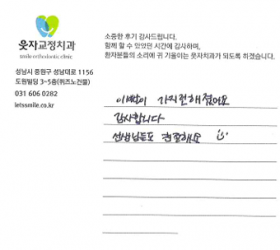 웃자교정치과
smile orthodontic clinic
성남시 중원구 성남대로 1156
도원빌딩 3-5층(위즈노건물)
031 606 0282
letssmile.co.kr
소중한 후기 감사드립니다.
함께 할 수 있었던 시간에 감사하며,
환자분들의 소리에 귀 기울이는 웃자치과가 되도록 하겠습니다.
이빨이 가지런해졌어요
감사합니다
선생님들도 친절해요